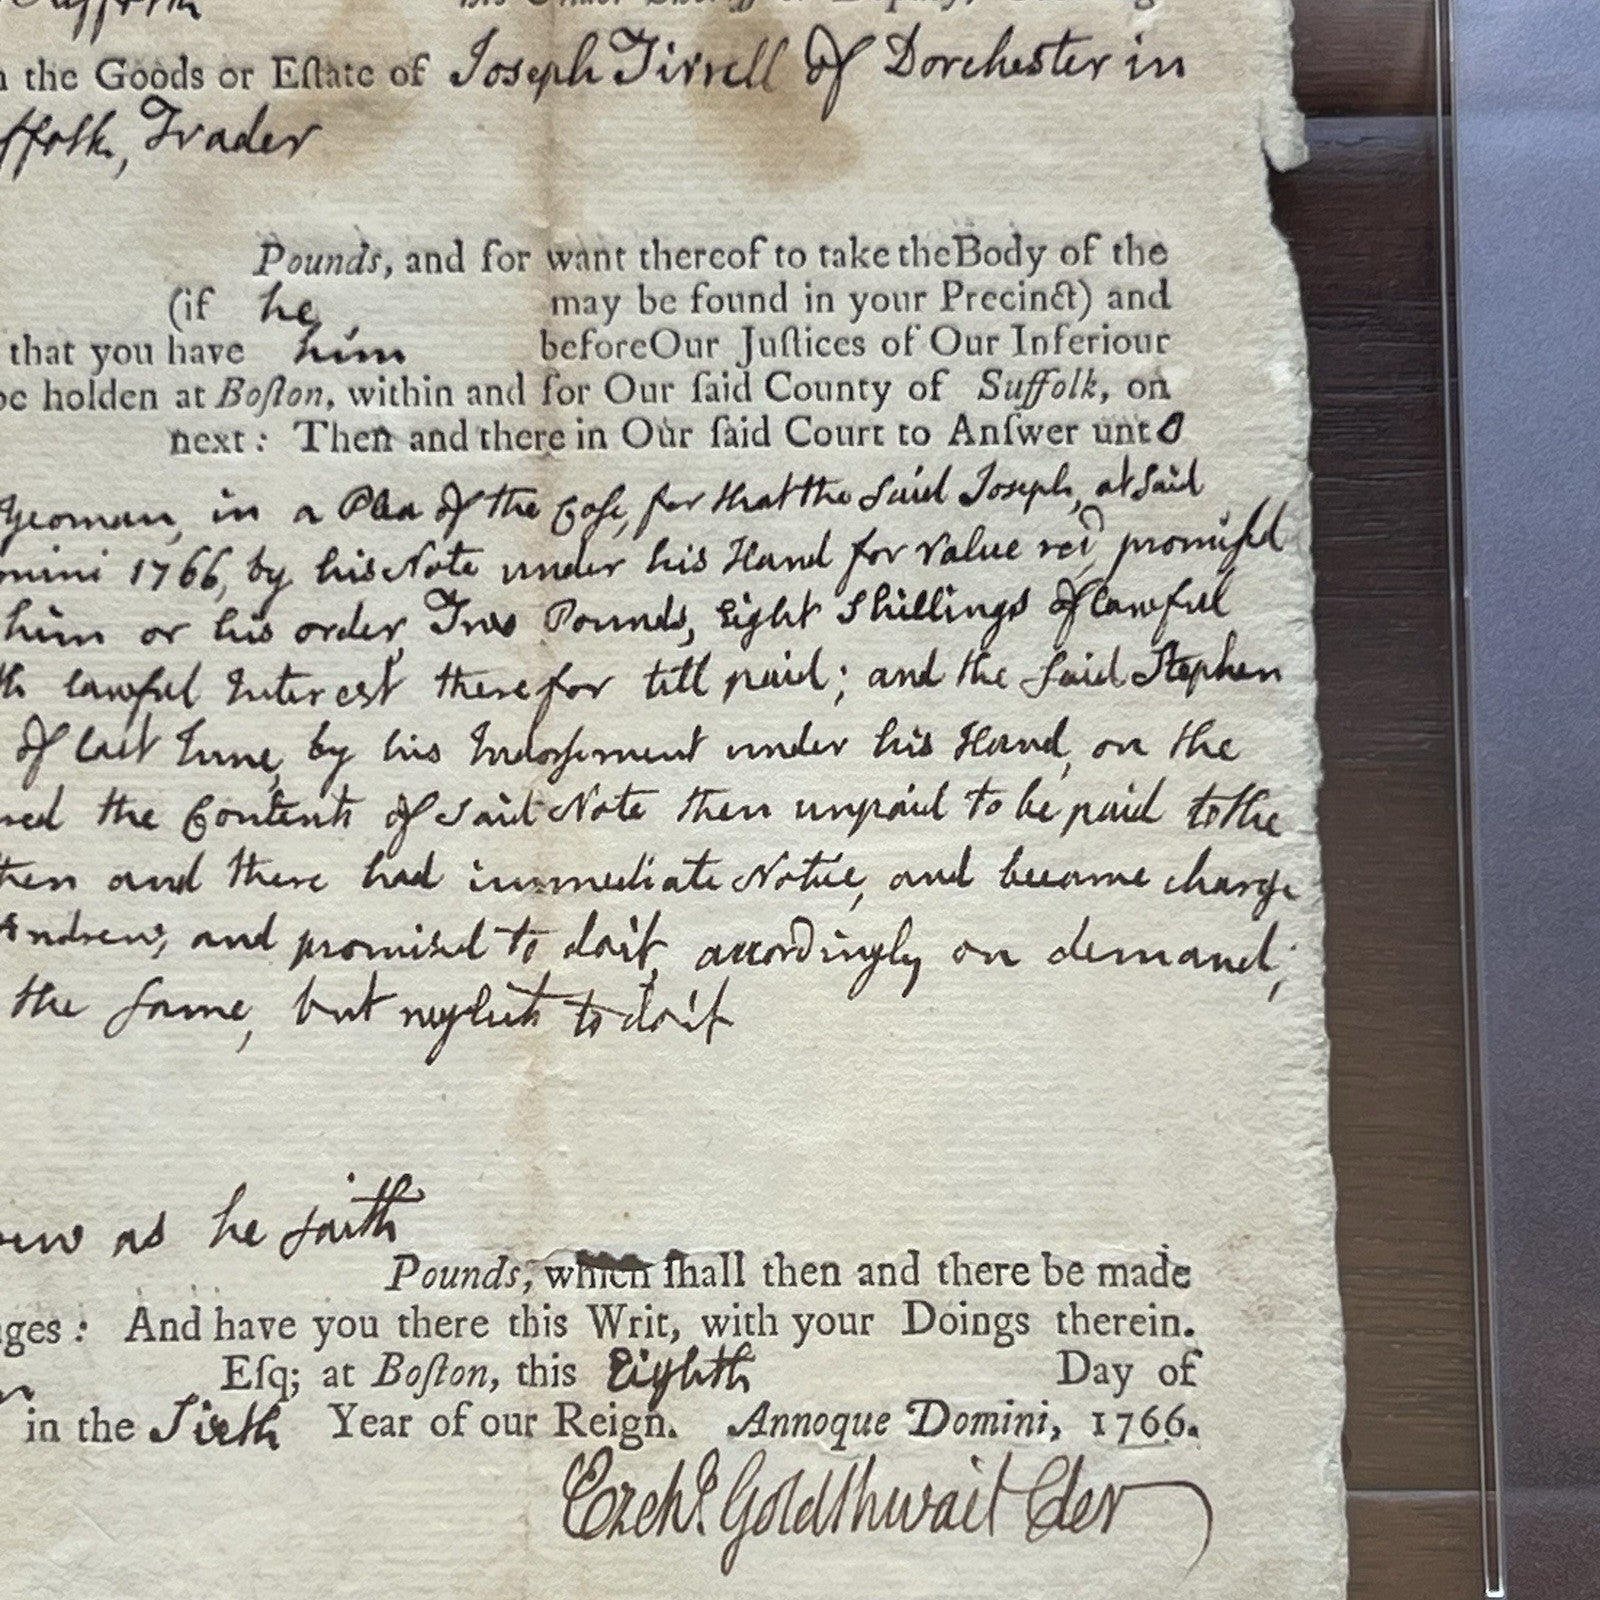 the Goods or Eſtate of Joseph Tirrell of Dorchester in
ffolk, Trader
Pounds, and for want thereof to take the Body of the
(if he may be found in your Precinct) and
that you have him before Our Juſtices of Our Inferiour
be holden at Boſton, within and for Our ſaid County of Suffolk, on
next: Then and there in Our ſaid Court to Anſwer unto
Yeoman, in a Plea of the Caſe, for that the Said Joseph, at Said
omini 1766, by his Note under his Hand for value recd, promiſed
him or his order, Two Pounds, Eight Shillings of lawful
th lawful Interest therefor till paid; and the Said Stephen
of last June, by his Indorſement under his Hand, on the
red the Contents of Said Note then unpaid to be paid to the
then and there had immediate Notice, and became charge
Andrew, and promised to do it accordingly on demand;
the ſame, but neglects to do it
rew as he ſaith
Pounds, which ſhall then and there be made
ages: And have you there this Writ, with your Doings therein.
Eſq; at Boſton, this Eighth Day of
in the Sixth Year of our Reign. Annoque Domini, 1766.
Ezekl. Goldthwait Cler